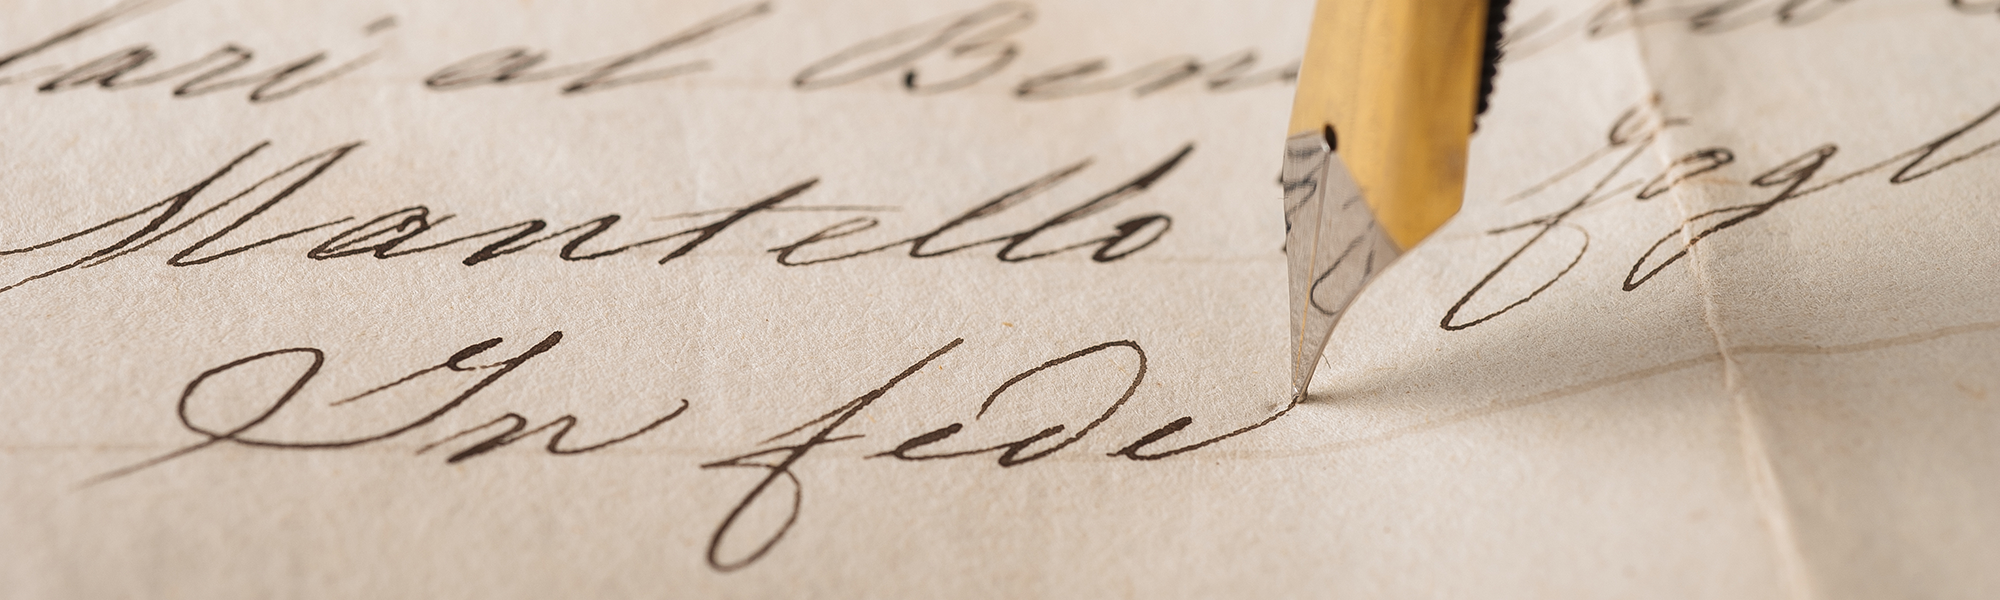 lari al Ben
Mantello fogl
In fede